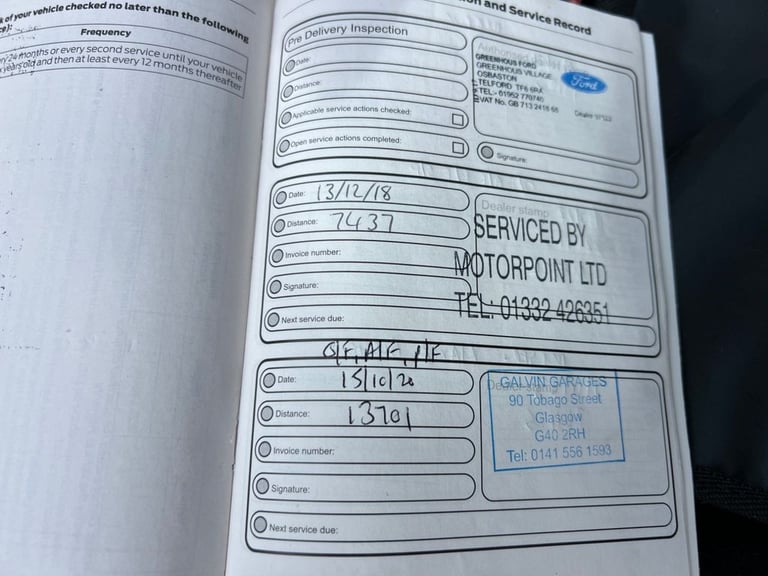 k of your vehicle checked no later than the following
ce):
Frequency
ry 24 months or every second service until your vehicle
years old and then at least every 12 months thereafter
on and Service Record
Pre Delivery Inspection
Date:
Distance:
Applicable service actions checked:
Open service actions completed:
GREENHOUS FORD
GREENHOUS VILLAGE
OSBASTON
TELFORD TF6 6RA
TEL:- 01952 770740
VAT No. GB 713 2418 66
Ford
Dealer
Signature:
Date: 13/12/18
Distance: 7437
Invoice number:
Signature:
Next service due:
Dealer stamp
SERVICED BY
MOTORPOINT LTD
TEL: 01332 426351
Date: 15/10/20
Distance: 13701
Invoice number:
Signature:
Next service due:
GALVIN GARAGES
90 Tobago Street
Glasgow
G40 2RH
Tel: 0141 556 1593